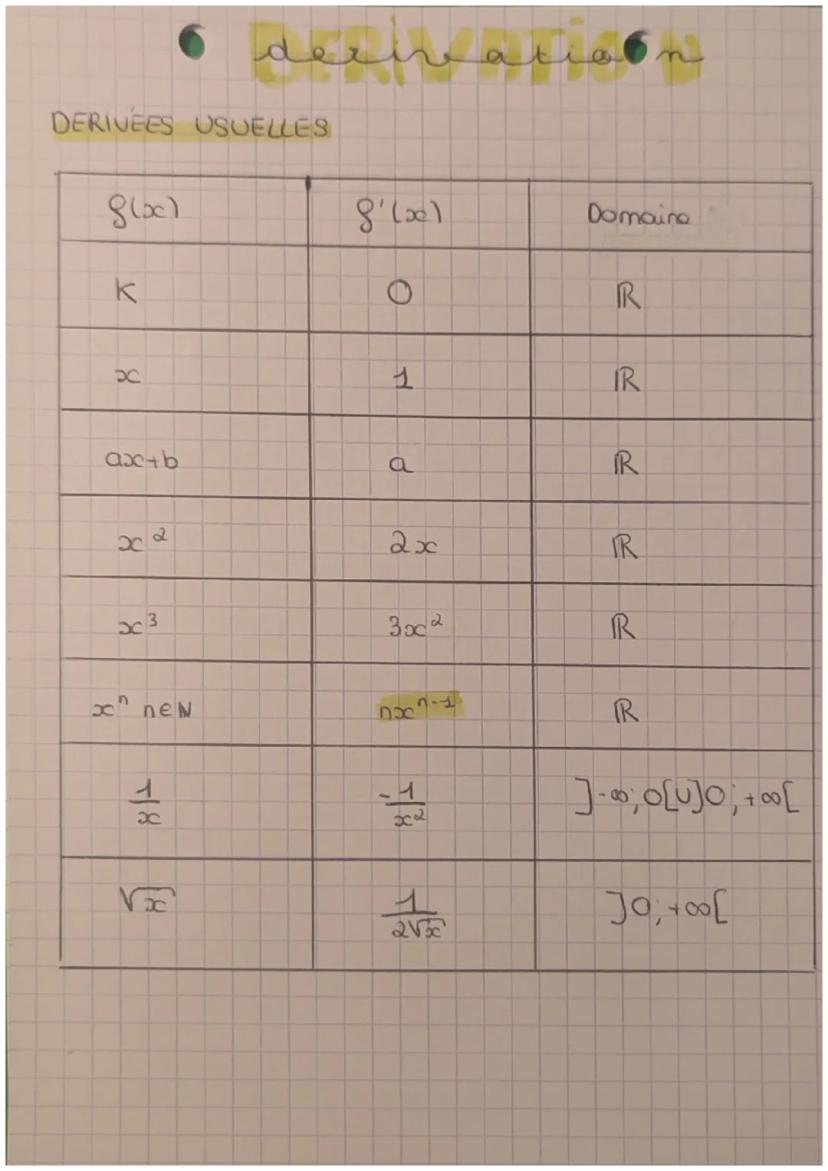 derivation
DERIVÉES USUELLES
f(x) f'(x) Domaine
K 0 ℝ
x 1 ℝ
ax+b a ℝ
x² 2x ℝ
x³ 3x² ℝ
xⁿ n∈ℕ nxⁿ⁻¹ ℝ
1/x -1/x² ]-∞;0[∪]0;+∞[
√x 1/(2√x) ]0;+∞[